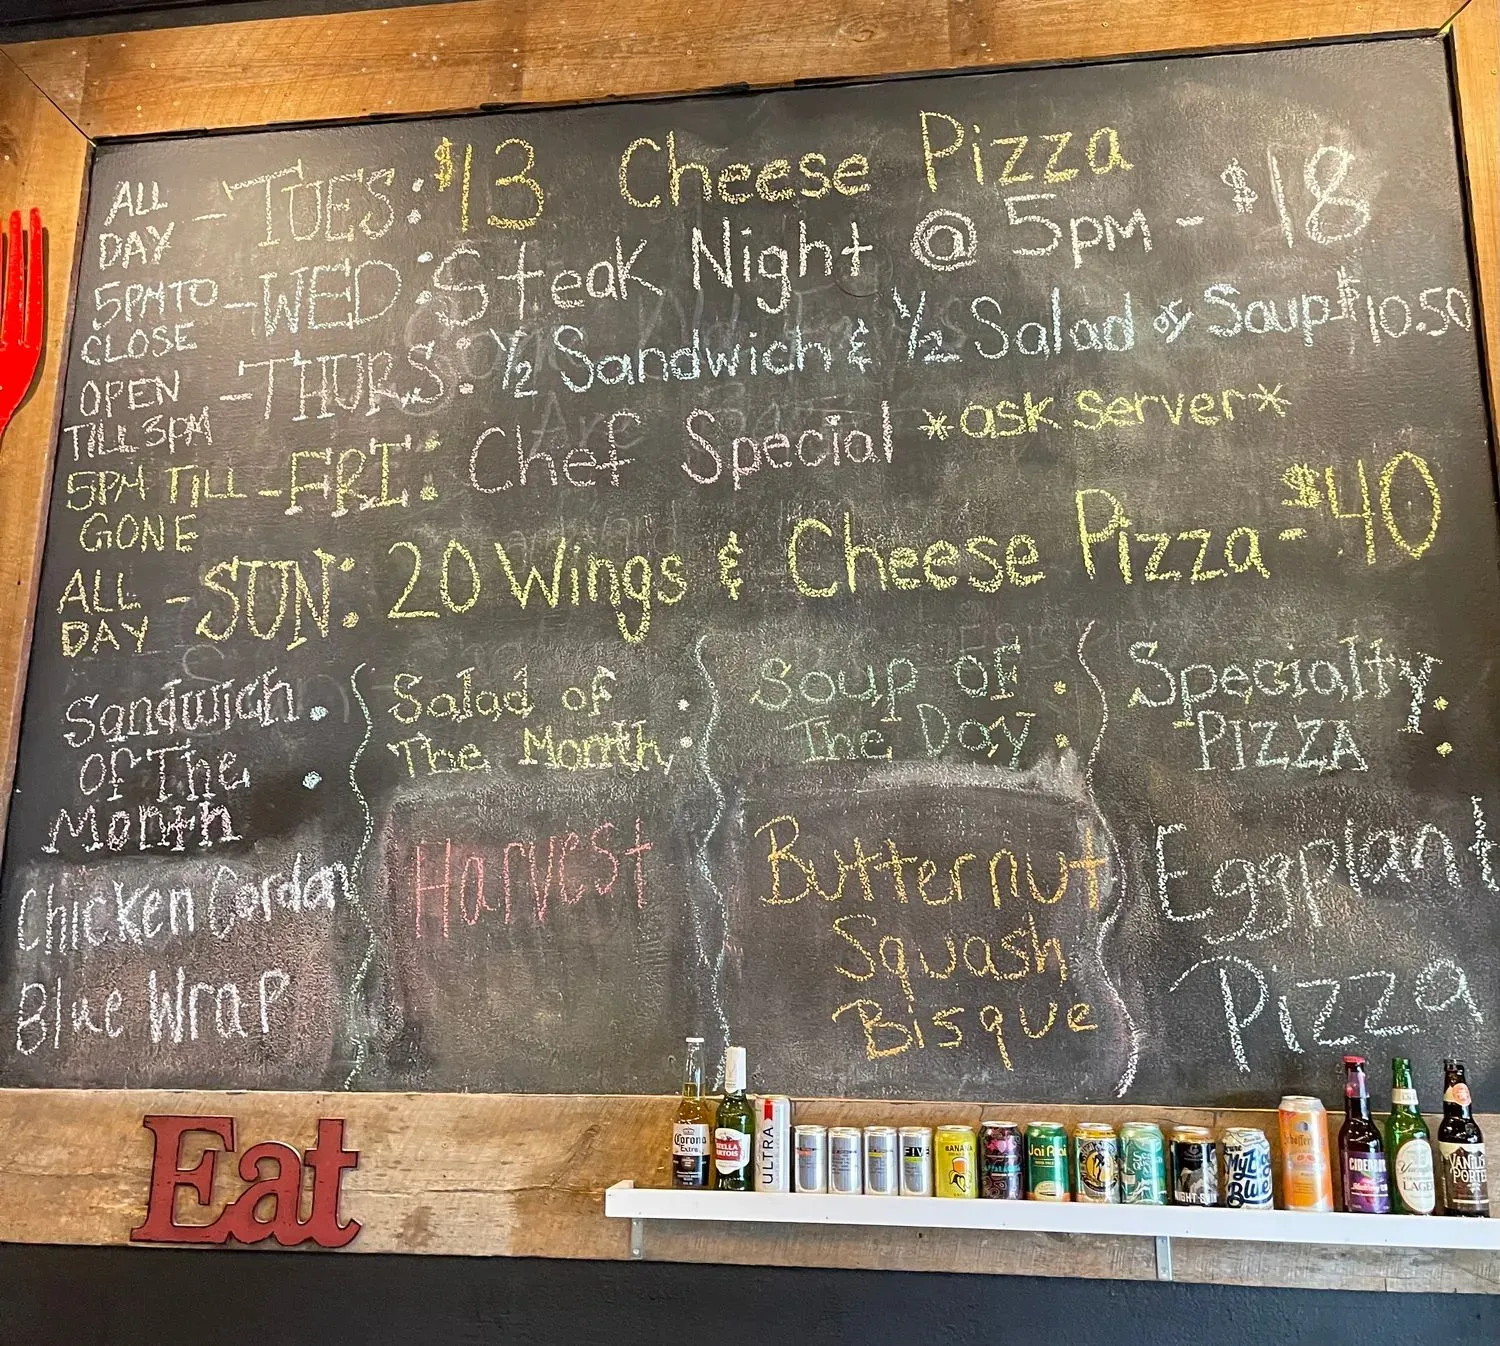 ALL DAY - TUES: $13 Cheese Pizza
5PM TO CLOSE - WED: Steak Night @ 5pm - $18
OPEN TILL 3PM - THURS: 1/2 Sandwich & 1/2 Salad or Soup $10.50
5PM TILL GONE - FRI: Chef Special *ask server*
ALL DAY - SUN: 20 Wings & Cheese Pizza - $40
Sandwich
Of The
Month:
Chicken Cordon
Blue Wrap
Salad of
The Month:
Harvest
Soup of
The Day:
Butternut
Squash
Bisque
Specialty
PIZZA:
Eggplant
Pizza
Eat
Corona
Extra
STELLA
ARTOIS
ULTRA
FIVE
BANANA
Jai Alai
NIGHT
My
Blue
Schöfferhofer
CIDERBOYS
LAGER
VANILLA
PORTER